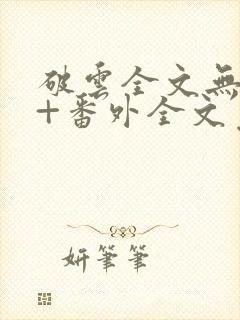 破雲全文無
+番外全文
妍筆筆